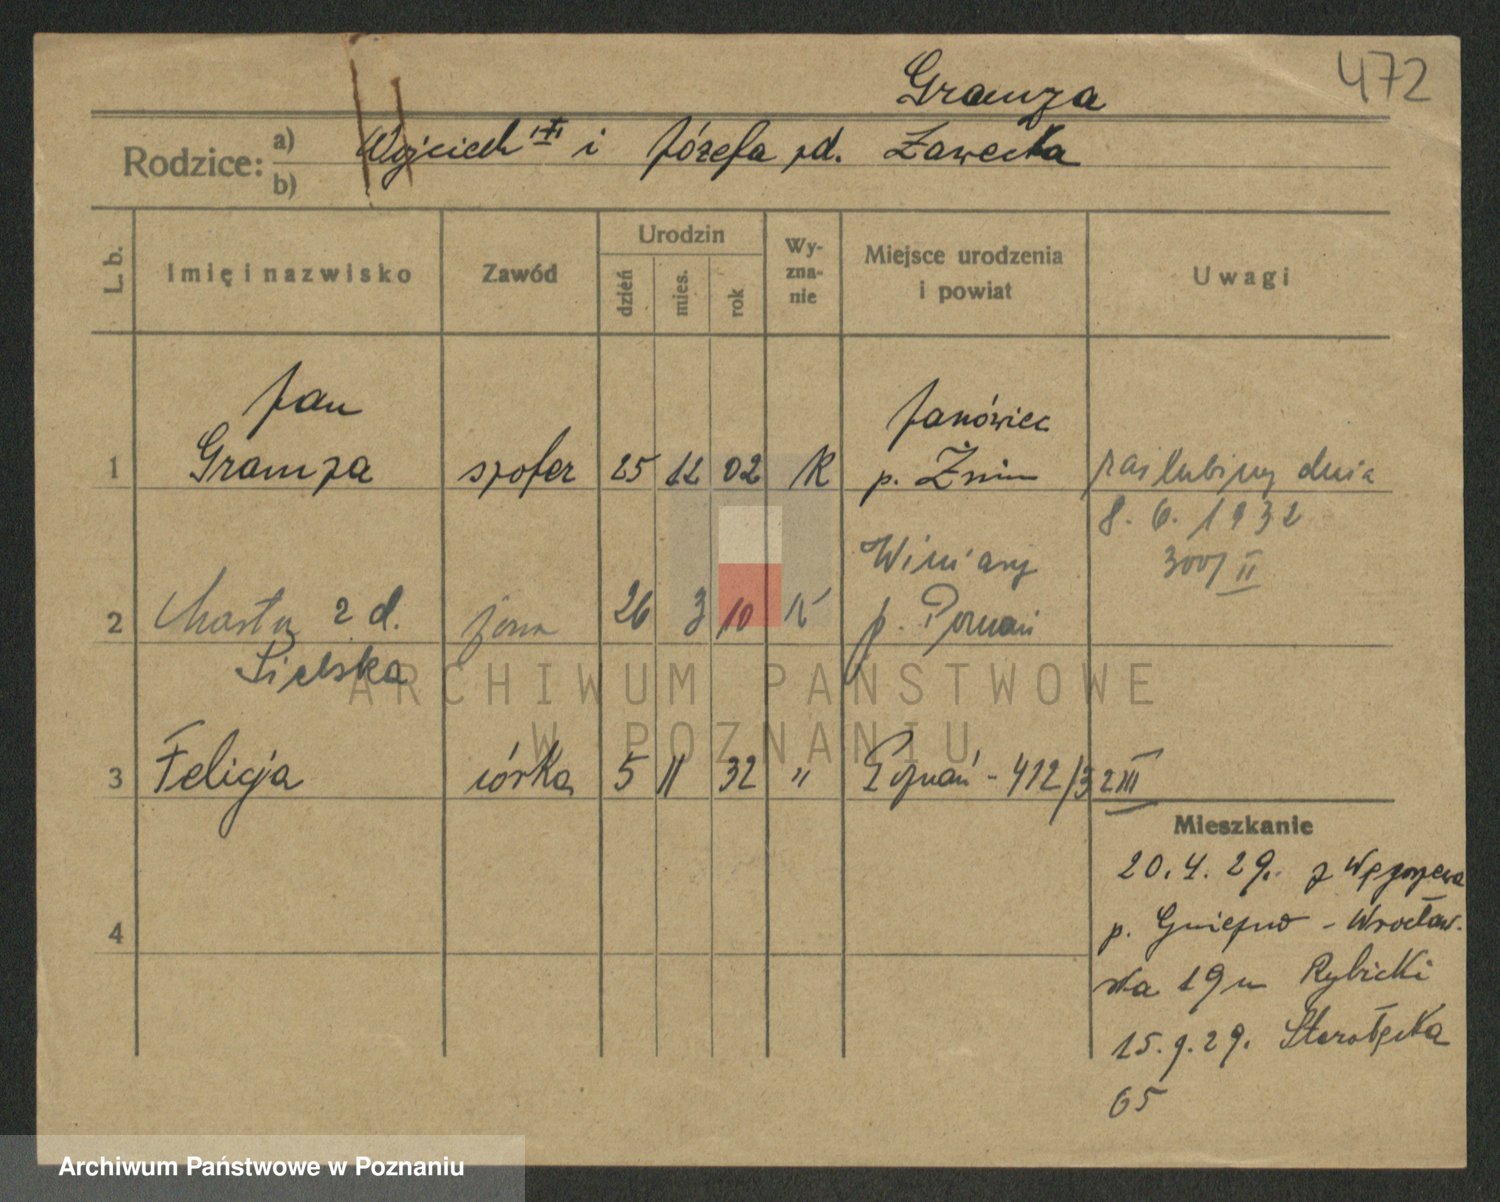 472
Gramza
Rodzice: a) Wojciech i Józefa zd. Zawecka
b)
L. b.
Imię i nazwisko
Zawód
Urodzin
dzień
mies.
rok
Wy-
zna-
nie
Miejsce urodzenia
i powiat
Uwagi
Jan Janówiec
1 Gramza szofer 25 12 02 K p. Żnin zaślubiny dnia
8. 6. 1932
300/II
Winiary
2 Marta z d. żona 26 3 10 K p. Poznań
Sielska
3 Felicja córka 5 11 32 " Poznań - 412/32 III
Mieszkanie
20. 4. 29. z
4 p. Gniezno - Wrocław-
ska 19 m Rybicki
15. 9. 29. Starołęcka
65
ARCHIWUM PAŃSTWOWE
W POZNANIU
Archiwum Państwowe w Poznaniu